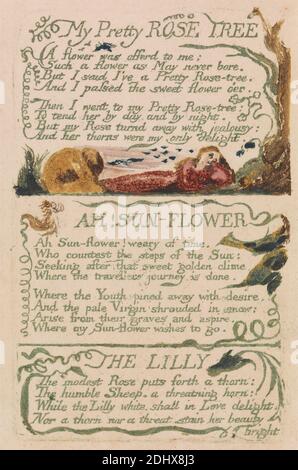 My Pretty ROSE TREE
A flower was offerd to me:
Such a flower as May never bore.
But I said I've a Pretty Rose-tree.
And I passed the sweet flower oer.
Then I went to my Pretty Rose-tree:
To tend her by day and by night.
But my Rose turnd away with jealousy:
And her thorns were my only delight.
AH! SUN-FLOWER
Ah Sun-flower! weary of time.
Who countest the steps of the Sun:
Seeking after that sweet golden clime
Where the travellers journey is done.
Where the Youth pined away with desire,
And the pale Virgin shrouded in snow:
Arise from their graves and aspire,
Where my Sun-flower wishes to go.
THE LILLY
The modest Rose puts forth a thorn:
The humble Sheep, a threatning horn:
While the Lilly white, shall in Love delight,
Nor a thorn nor a threat stain her beauty
bright
alamy
Image ID: 2DHX8J3
www.alamy.com